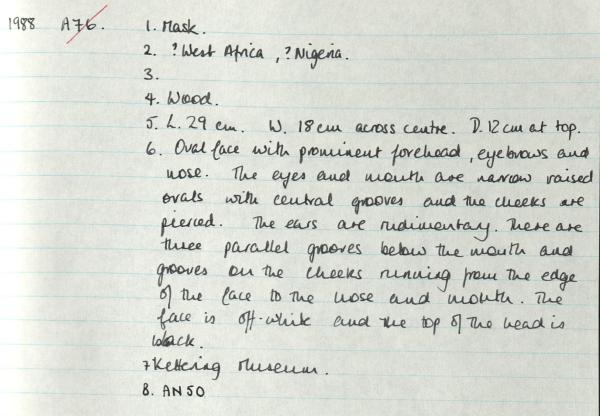 1988 A76. 1. Mask.
2. ?West Africa, ?Nigeria.
3.
4. Wood.
5. L. 29 cm. W. 18cm across centre. D. 12cm at top.
6. Oval face with prominent forehead, eyebrows and
nose. The eyes and mouth are narrow raised
ovals with central grooves and the cheeks are
pierced. The ears are rudimentary. There are
three parallel grooves below the mouth and
grooves on the cheeks running from the edge
of the face to the nose and mouth. The
face is off-white and the top of the head is
black.
7 Kettering Museum.
8. AN50